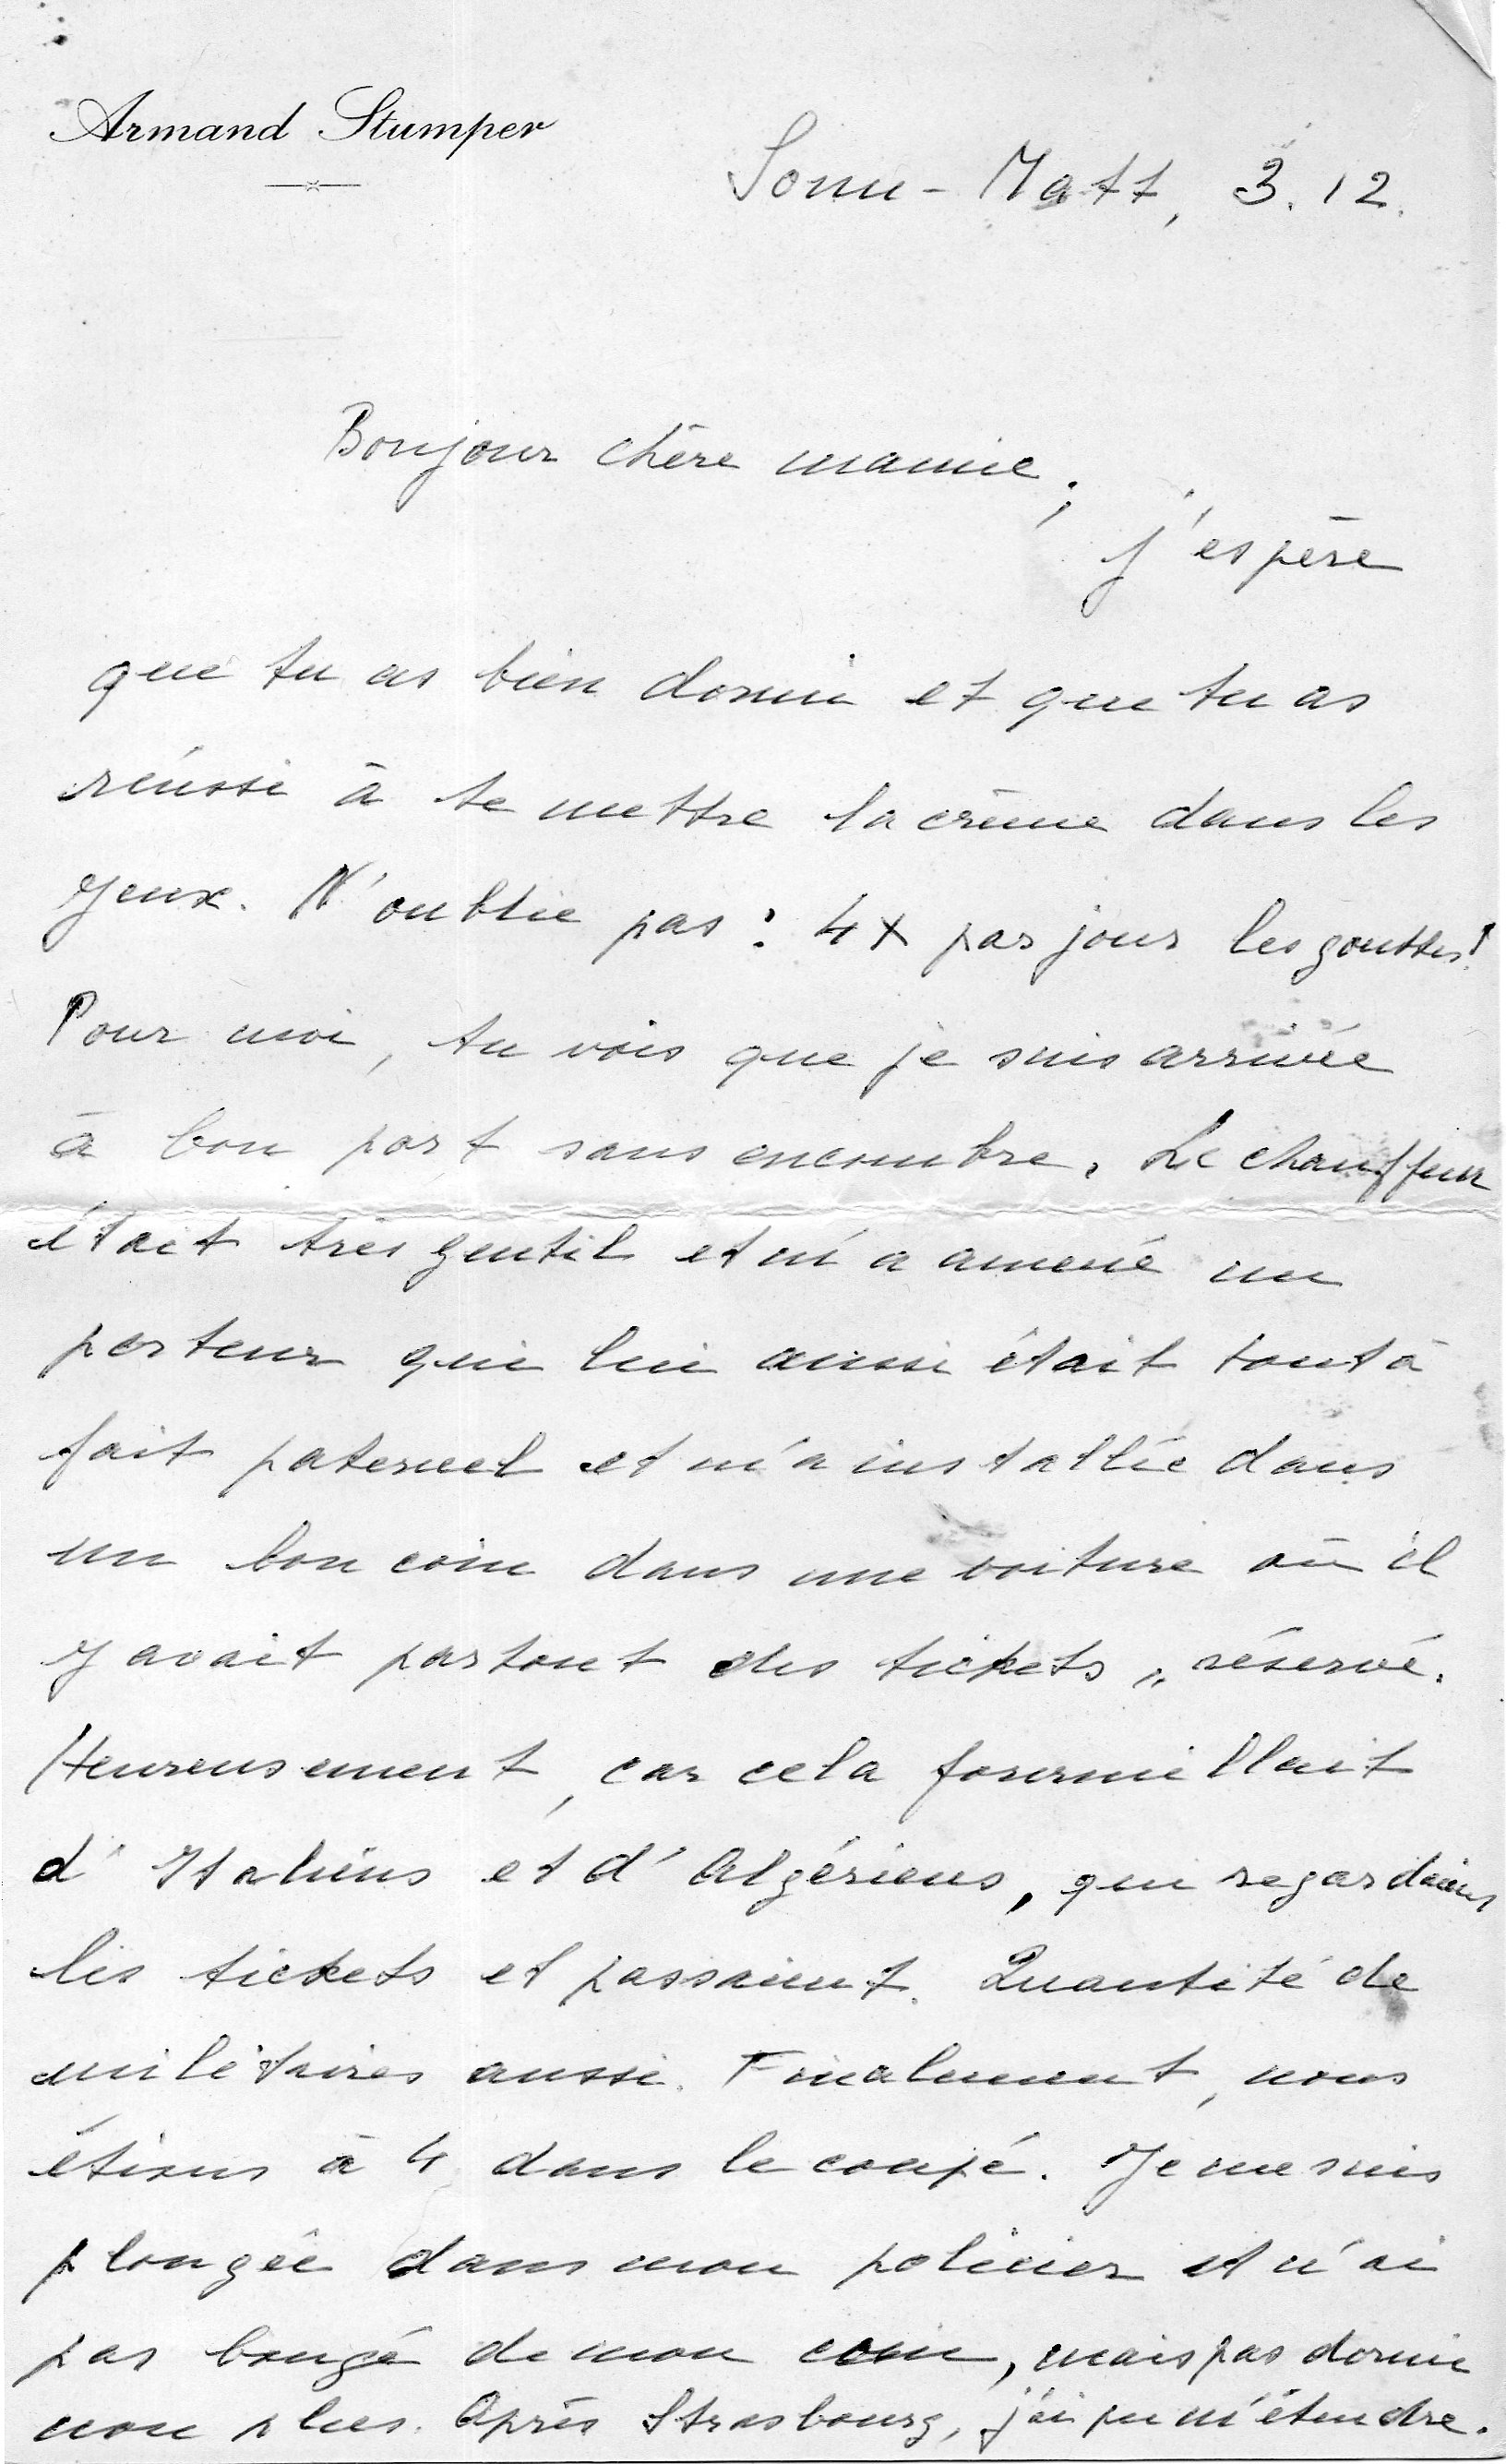 Armand Stumper
Sonn-Matt, 3.12.
Bonjour chère mamie,
j'espère
que tu as bien dormi et que tu as
réussi à te mettre la crème dans les
yeux. N'oublie pas : 4x par jour les gouttes!
Pour moi, tu vois que je suis arrivée
à bon port sans encombre. Le chauffeur
était très gentil et m'a amené un
porteur qui lui aussi était tout à
fait paternel et m'a installée dans
un bon coin dans une voiture où il
y avait partout des tickets „réservé.
Heureusement, car cela fourmillait
d'Italiens et d'Algériens, qui regardaient
les tickets et passaient. Quantité de
militaires aussi. Finalement, nous
étions à 4 dans le coupé. Je me suis
plongée dans mon policier et n'ai
pas bougé de mon coin, mais pas dormi
non plus. Après Strasbourg, j'ai pu m'étendre.